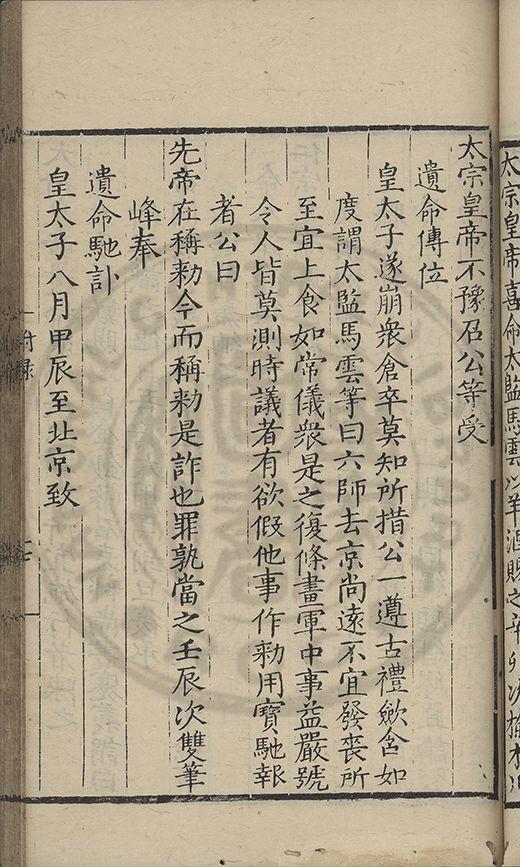 太宗皇帝喜命太監馬雲以羊酒賜之
太宗皇帝不豫召公等受
遺命傳位
皇太子遂崩衆倉卒莫知所措公一遵古禮歛含如
度謂太監馬雲等曰六師去京尚遠不宜發喪所
至宜上食如常儀衆是之復條畫軍中事益嚴號
令人皆莫測時議者有欲假他事作勑用寶馳報
者公曰
先帝在稱勑今而稱勑是詐也罪孰當之壬辰次雙筆
峰奉
遺命馳訃
皇太子八月甲辰至北京致
附錄